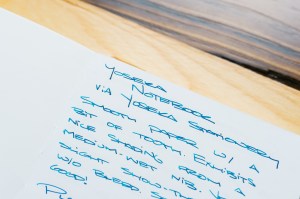 YOSEKA
NOTEBOOK
VIA YOSEKA STATIONERY
SMOOTH PAPER W/ A
BIT OF TOOTH. EXHIBITS
NICE SHADING FROM A
MEDIUM-WET NIB. V
SLIGHT SHOW-TH
W/O BLEED. S
GOOD!